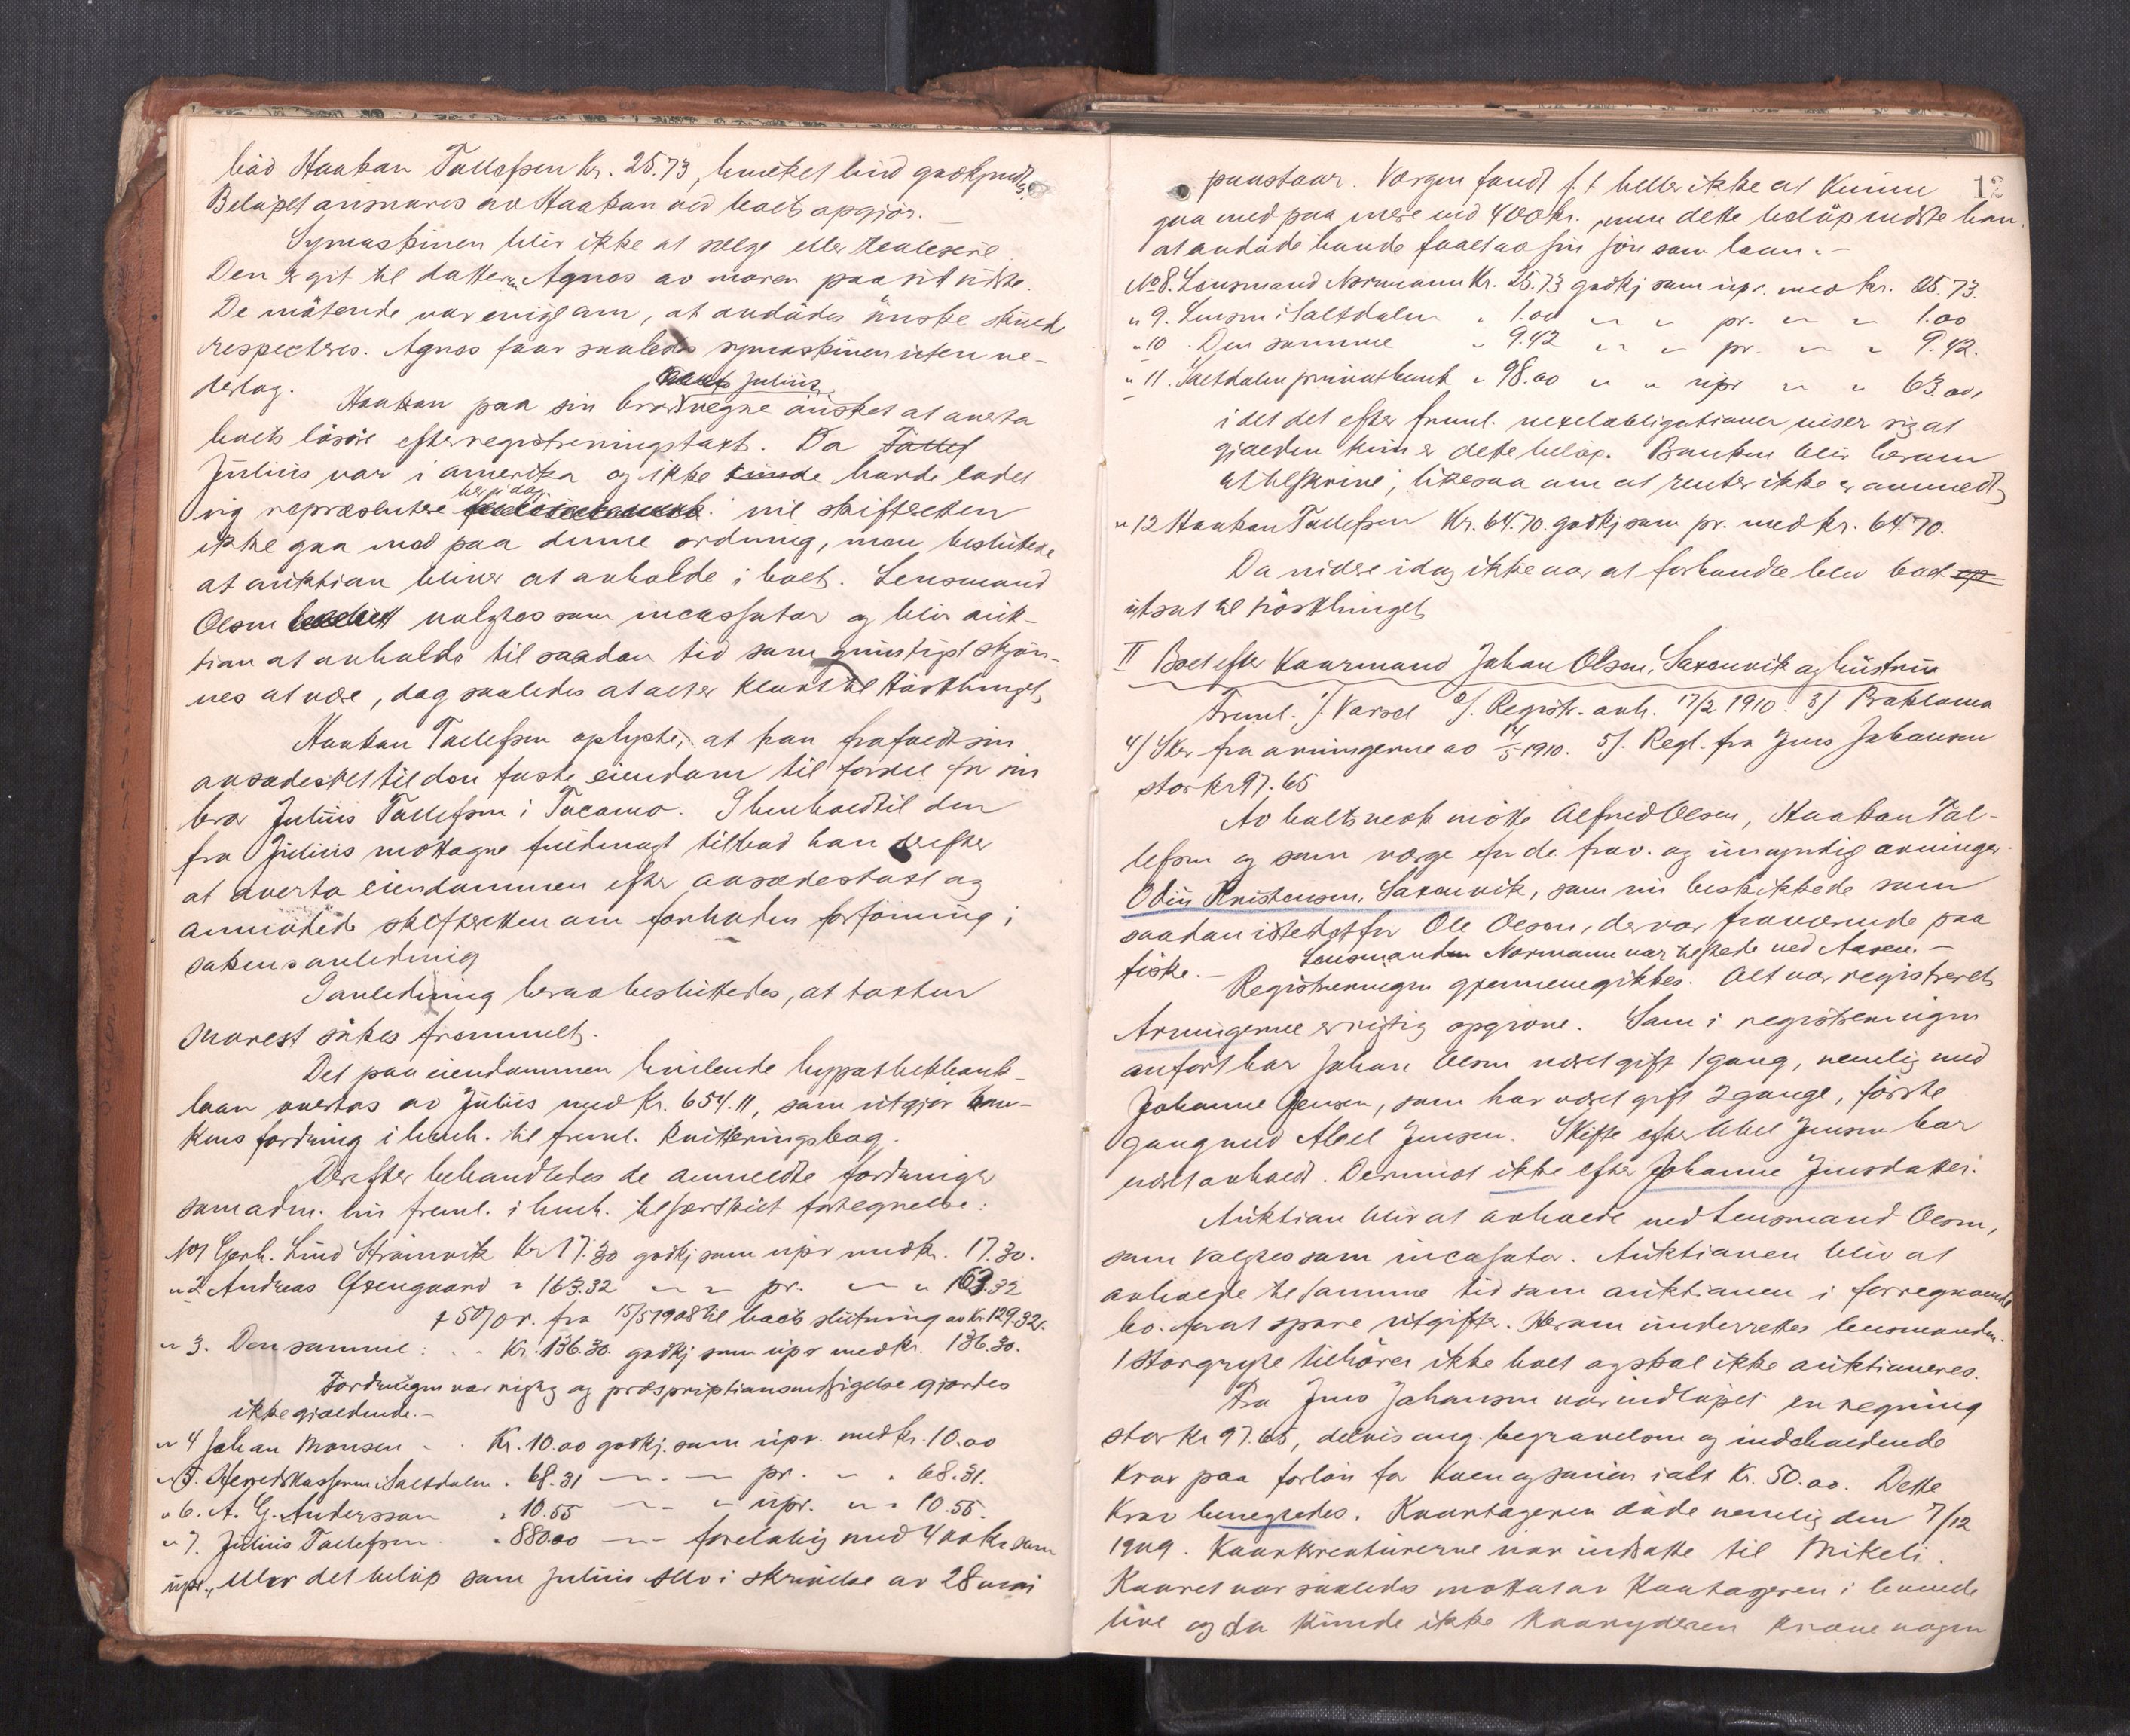 bød Haakan Tollefsen kr. 25.73, hvilket bud godkjendtes.
Beløpet ansvares av Haakan ved boets opgjør.
Symaskinen blir ikke at sælge eller realisere.
Den er git til datteren Agnes av moren paa sit sidste.
De møtende var enige om, at avdødes ønske skulde
respecteres. Agnes faar saaledes symaskinen uten ve-
derlag.
Haakan paa sin bror Julius vegne ønsket at overta
boets løsøre efter registreringstaxt. Da Tollef
Julius var i amerika og ikke kunde havde ladet
sig repræsentere her idag vil skifteretten
ikke gaa med paa denne ordning, men besluttede
at auktion bliver at avholde i boet. Lensmand
Olsen valgtes som incassator og blir auk-
tion at avholde til saadan tid som gunstigst skjøn-
nes at være, dog saaledes at alt er klart til Høstthinget,
Haakan Tollefsen oplyste, at han frafaldt sin
aasædesret til den faste eiendom til fordel for sin
bror Julius Tollefsen i Tacoma. I henhold til den
fra Julius mottagne fuldmagt tilbød han derefter
at overta eiendommen efter aasædestaxt og
anmodede skifteretten om fornøden forføining i
sakens anledning
I anledning herav besluttedes, at taxten
snarest søkes fremmet.
Det paa eiendommen hvilende hypothekbank-
laan overtas av Julius med kr. 654.11, som utgjør ban-
kens fordring i henh. til freml. kvitteringsbog.
Derefter behandledes de anmeldte fordringer
som adm. nu freml. i henh. til særskilt fortegnelse:
No 1 Gerh. Lund Strømvik Kr 17.30 godkj som upr med kr. 17.30.
" 2 Andreas Evengaard " 163.32 " " pr. " " 163.32
+ 5% r. fra 15/5 1908 til boets slutning av kr. 129.32.
" 3. Den samme: Kr. 136.30 godkj som upr med kr. 136.30.
Fordringen var rigtig og præscriptionsindsigelse gjordes
ikke gjældende.—
" 4 Johan Monsen Kr. 10.00 godkj. som upr. med kr. 10.00
" 5. Herredskassereren i Saltdalen " 68.31 " " pr. " " 68.31.
" 6. A. G. Andersson " 10.55 " " upr. " " 10.55.
" 7. Julius Tollefsen " 880.00 " " foreløbig med 400 kr som
upr., det beløp som Julius selv i skrivelse av 28 mai
12
paastaar. Værgen fandt f. t heller ikke at kunne
gaa med paa mere end 400 kr., men dette beløp vidste han,
at avdøde havde faaet av sin søn som laan.—
No 8. Lensmand Normann Kr. 25.73 godkj som upr. med kr. 25.73.
" 9. Lensm i Saltdalen " 1.00 " " pr. " " 1.00
" 10. Den samme " 9.42 " " pr. " " 9.42.
" 11. Saltdalen privatbank " 98.00 " " upr " " 63.00,
idet det efter freml. vexelobligationer viser sig at
gjælden kun er dette beløp. Banken blir herom
at tilskrive, likesaa om at renter ikke er anmeldt,
" 12 Haakan Tollefsen Kr. 64.70. godkj som pr. med kr. 64.70.
Da videre idag ikke var at forhandle blev boet op-
utsat til høstthinget
II Boet efter Kaarmand Johan Olsen, Saxenvik og hustru
Freml. 1/. Varsel 2/. Registr. avh. 17/2 1910. 3/ Proklama
4/ Skr fra arvingerne av 14/5 1910. 5/. Regl. fra Jens Johansen
stor kr 97.65
Av boets vedk møtte Alfred Olsen, Haakan Tol-
lefsen og som værge for de frav. og umyndig arvinger
Odin Kristensen, Saxenvik, som nu beskikkedes som
saadan istedetfor Ole Olsen, der var fraværende paa
fiske.— Lensmanden Normann var tilstede ved Aasen.—
Registreringen gjennemgikkes. Alt var registreret
Arvingerne er rigtig opgivne. Som i registreringen
anført har Johan Olsen været gift 1 gang, nemlig med
Johanne Jensen, som har været gift 2 gange, første
gang med Abel Jensen. Skifte efter Abel Jensen har
været avholdt. Derimot ikke efter Johanne Jensdatter.
Auktion blir at avholde ved Lensmand Olsen,
som valgtes som incassator. Auktionen blir at
avholde til samme tid som auktionen i forregnaaende
bo. for at spare utgifter. Herom underrettes lensmanden.
1 stor gryte tilhører ikke boet og skal ikke auktioneres.
Fra Jens Johansen var indløpet en regning
stor kr 97.65, delvis ang. begravelsen og indeholdende
krav paa forløn for koen og sauen ialt kr. 50.00. Dette
krav benegtedes. Kaartageren døde nemlig den 7/12
1909. Kaarkreaturerne var indsatte til Mikeli.
Kaaret var saaledes mottat av Kaartageren i levende
live og da kunde ikke kaaryderen kræve nogen